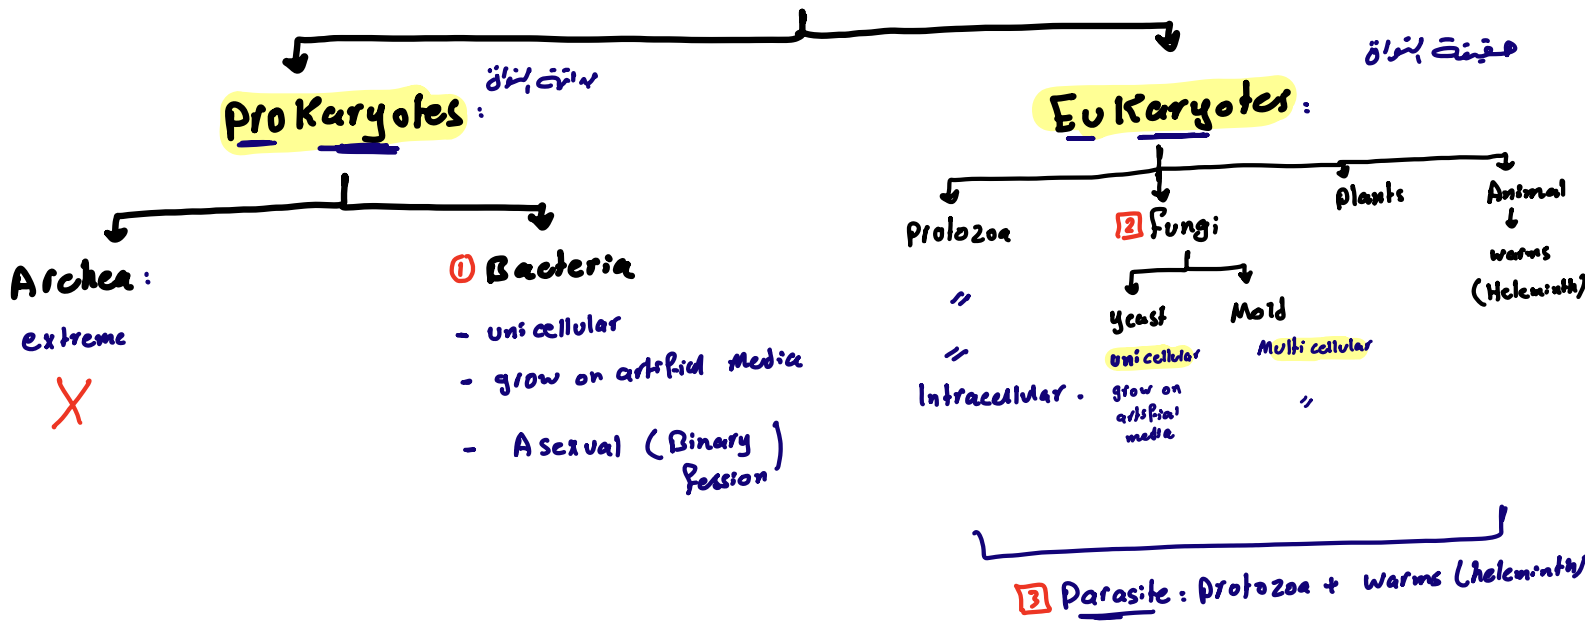 ProKaryotes:
بدائية النواة
EuKaryotes:
حقيقية النواة
Archea:
extreme
X
1 Bacteria
- unicellular
- grow on artifial Media
- Asexual (Binary
fession)
Protozoa
"
"
Intracellular.
2 Fungi
yeast
unicellular
grow on
artifial
media
Mold
Multicellular
"
Plants
Animal
warms
(Heleminth)
3 Parasite: Protozoa + warms (heleminth)